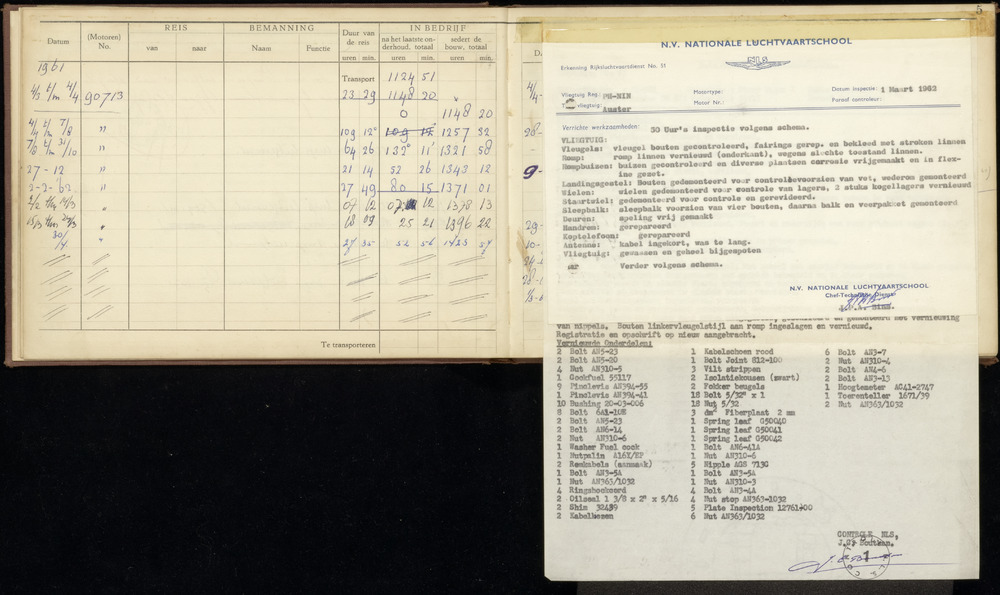 REIS BEMANNING IN BEDRIJF
Datum (Motoren) No. van naar Naam Functie Duur van de reis na het laatste onderhoud, totaal sedert de bouw, totaal
uren min. uren min. uren min.
1961
Transport 1124 51
4/3 t/m 4/4 90713 23 29 1148 20
0 1148 20
4/4 t/m 7/8 " 109 12 109 12 1257 32
7/8 t/m 31/10 " 64 26 132 11 1321 58
27-12 " 21 14 52 26 1343 12
2-2-62 " 27 49 80 15 1371 01
07 12 12 1378 13
18 09 25 21 1396 22
30/4 " 27 35 52 56 1423 57
Te transporteren
5
N.V. NATIONALE LUCHTVAARTSCHOOL
Erkenning Rijksluchtvaartdienst No. 51
Vliegtuig Reg.: PH-NIN Motortype: Datum inspectie: 1 Maart 1962
vliegtuig: Auster Motor Nr.: Paraaf controleur:
Verrichte werkzaamheden: 50 Uur's inspectie volgens schema.
VLIEGTUIG:
Vleugels: vleugel bouten gecontroleerd, fairings gerep. en bekleed met stroken linnen
Romp: romp linnen vernieuwd (onderkant), wegens slechte toestand linnen.
Rompbuizen: buizen gecontroleerd en diverse plaatsen corrosie vrijgemaakt en in flex-
ine gezet.
Landingsgestel: Bouten gedemonteerd voor controle voorzien van vet, wederom gemonteerd
Wielen: wielen gedemonteerd voor controle van lagers, 2 stuks kogellagers vernieuwd
Staartwiel: gedemonteerd voor controle en gereviseerd.
Sleepbalk: sleepbalk voorzien van vier bouten, daarna balk en veerpakket gemonteerd
Deuren: speling vrij gemaakt
Handrem: gerepareerd
Koptelefoon: gerepareerd
Antenne: kabel ingekort, was te lang.
Vliegtuig: gewassen en geheel bijgespoten
Verder volgens schema.
N.V. NATIONALE LUCHTVAARTSCHOOL
Chef-Technische Dienst
van nippels. Bouten linkervleugelstijl aan romp ingeslagen en vernieuwd.
Registratie en opschrift op nieuw aangebracht.
Vernieuwde Onderdelen:
2 Bolt AN5-23 1 Kabelschoen rood 6 Bolt AN3-7
2 Bolt AN5-20 1 Bolt Joint 812-100 2 Nut AN310-4
4 Nut AN310-5 3 Vilt strippen 2 Bolt AN4-6
1 Cockfuel 55117 2 Isolatiekousen (zwart) 2 Bolt AN3-13
9 Pinclevis AN394-55 2 Fokker beugels 1 Hoogtemeter AC41-2747
1 Pinclevis AN394-41 18 Bolt 5/32" x 1 1 Toerenteller 1671/39
10 Bushing 20-03-006 18 Nut 5/32 2 Nut AN363/1032
8 Bolt 6A1-10E 3 dm² Fiberplaat 2 mm
2 Bolt AN5-23 1 Spring leaf G50040
2 Bolt AN6-14 1 Spring leaf G50041
2 Nut AN310-6 1 Spring leaf G50042
1 Washer Fuel cock 1 Bolt AN6-41A
1 Nutpalin A16Y/EP 1 Nut AN310-6
2 Remkabels (aanmaak) 5 Nipple AGS 713C
1 Bolt AN3-5A 1 Bolt AN3-5A
1 Nut AN363/1032 1 Nut AN310-3
4 Ringshockcord 4 Bolt AN3-4A
2 Oilseal 1 3/8 x 2" x 5/16 4 Nut stop AN363-1032
2 Shim 32439 5 Plate Inspection 12761-00
2 Kabelhozen 6 Nut AN363/1032
CONTROLE NLS,